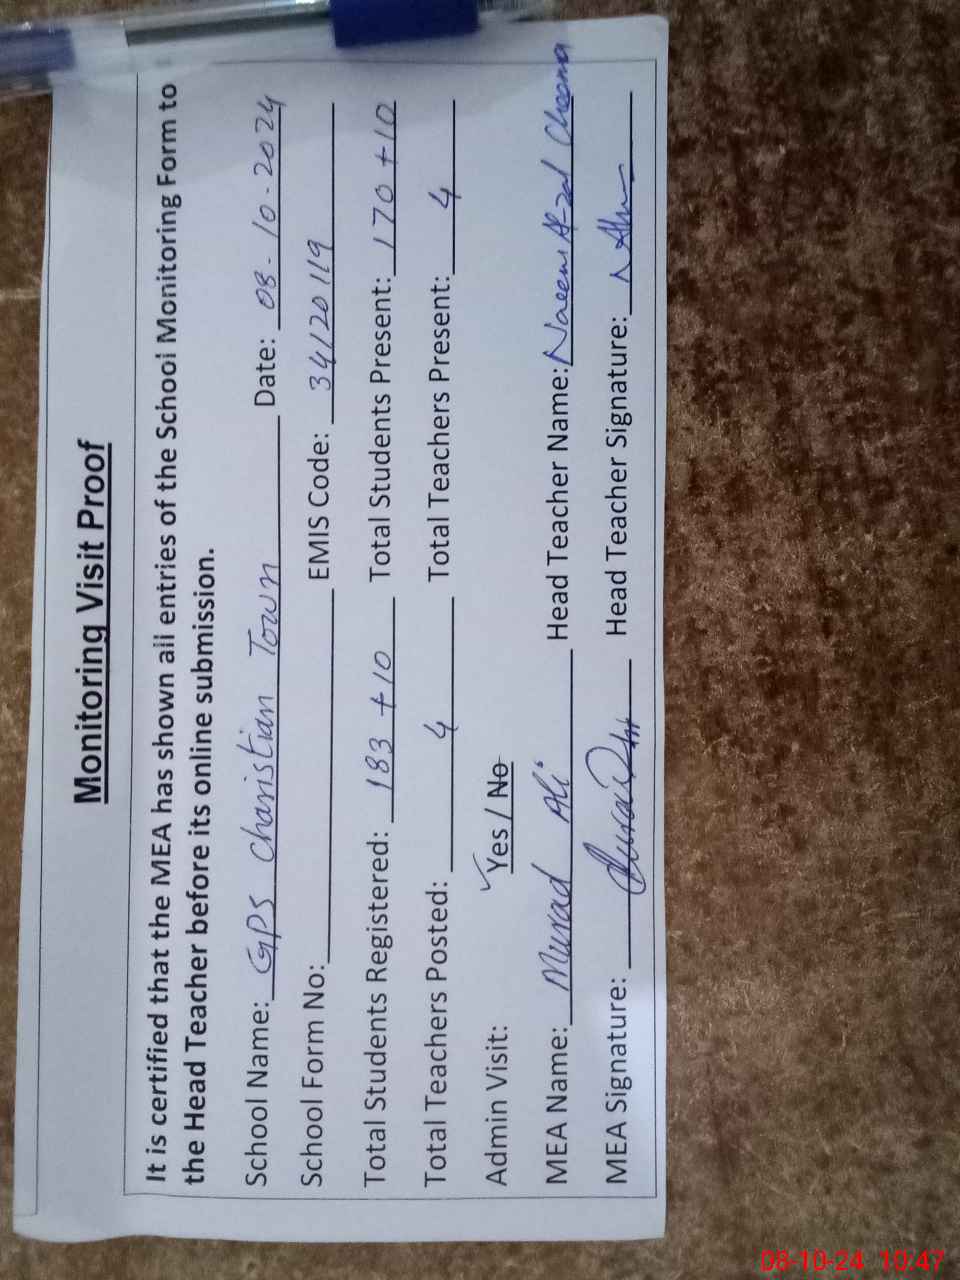 Monitoring Visit Proof
It is certified that the MEA has shown all entries of the School Monitoring Form to
the Head Teacher before its online submission.
School Name: GPS Christian Town Date: 08-10-2024
School Form No: EMIS Code: 34120119
Total Students Registered: 183 + 10 Total Students Present: 170 + 10
Total Teachers Posted: 4 Total Teachers Present: 4
Admin Visit: Yes / No
MEA Name: Murad Ali Head Teacher Name: Naeem Afzal Cheema
MEA Signature: Head Teacher Signature:
08-10-24 10:47